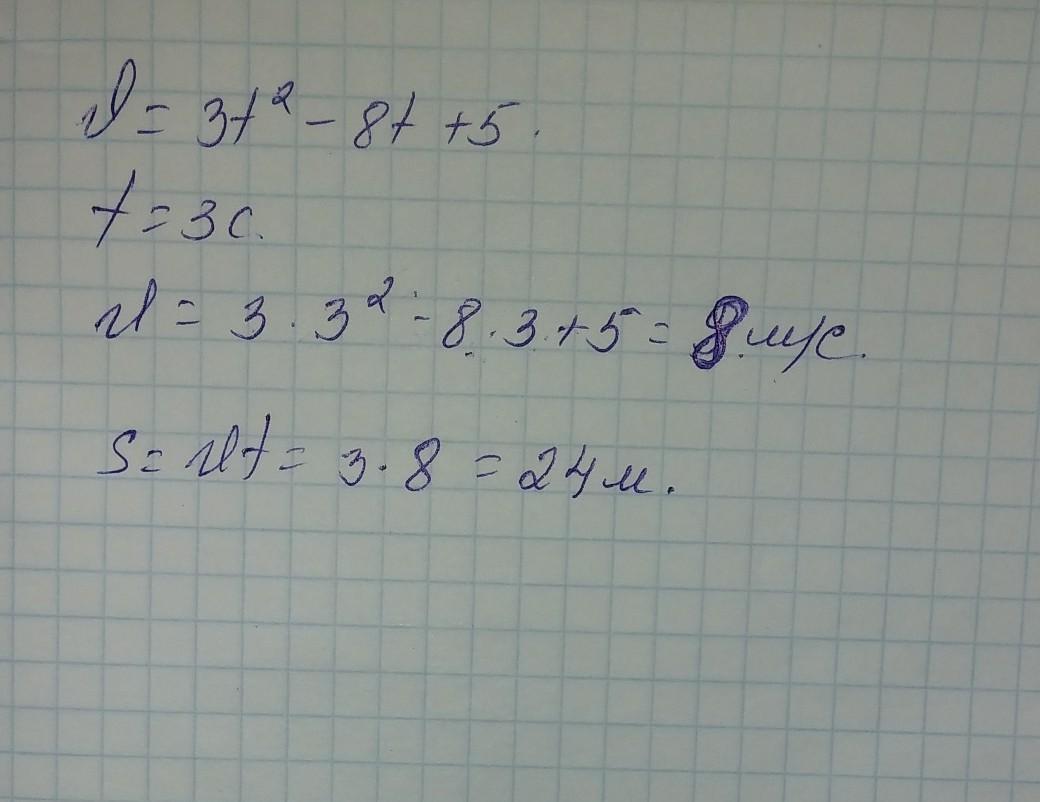 v = 3t² - 8t + 5.
t = 3 с.
v = 3 · 3² - 8 · 3 + 5 = 8 м/с.
S = vt = 3 · 8 = 24 м.